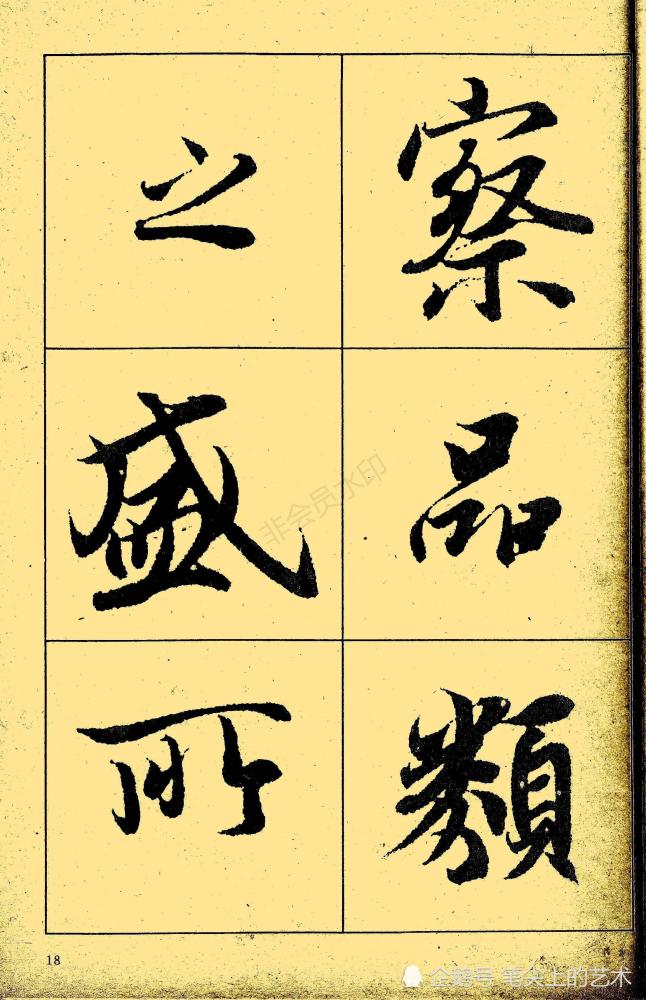 察品類
之盛所
非会员水印
18
企鹅号 笔尖上的艺术